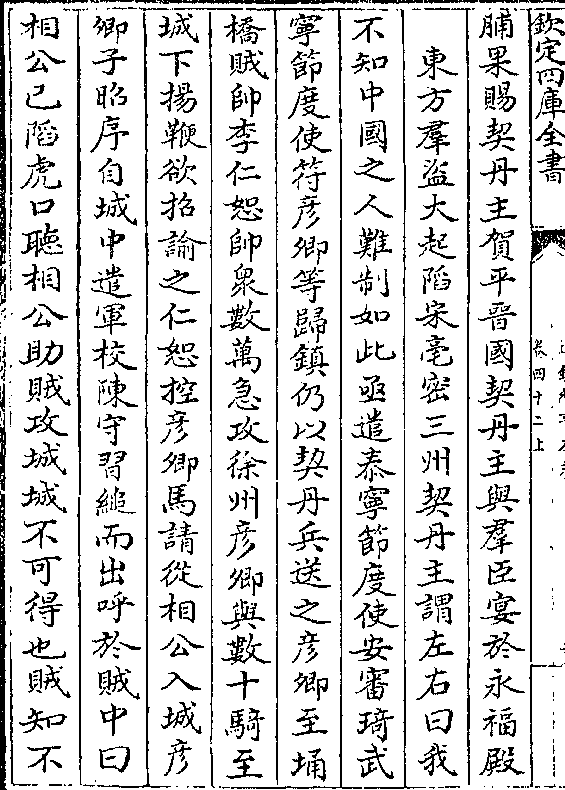 欽定四庫全書
卷四十二上
脯果賜契丹主賀平晉國契丹主與羣臣宴於永福殿
東方羣盜大起陷宋亳密三州契丹主謂左右曰我
不知中國之人難制如此亟遣泰寧節度使安審琦武
寧節度使符彦卿等歸鎮仍以契丹兵送之彦卿至埇
橋賊帥李仁恕帥衆數萬急攻徐州彦卿與數十騎至
城下揚鞭欲招諭之仁恕控彦卿馬請從相公入城彦
卿子昭序自城中遣軍校陳守習縋而出呼於賊中曰
相公已陷虎口聽相公助賊攻城城不可得也賊知不